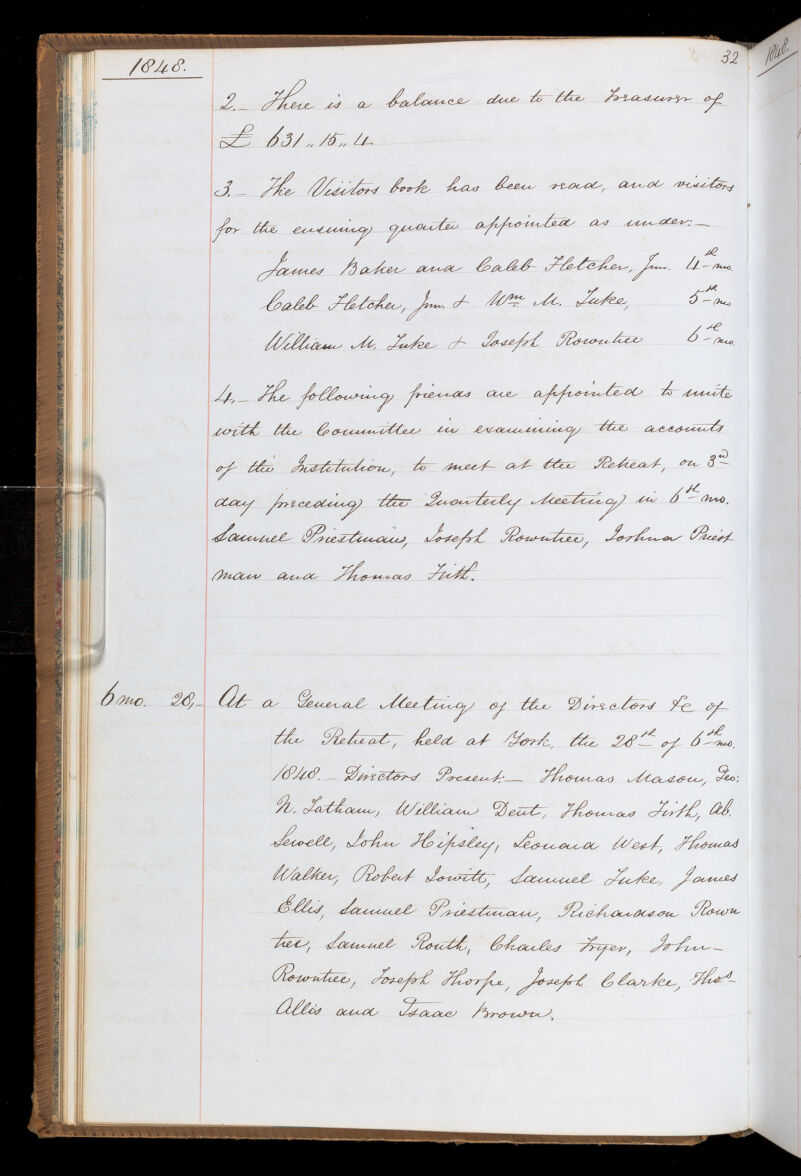 32
1848.
1848.
2.- There is a balance due to the Treasurer of
£ 631,, 15,, 4.
3.- The Visitors book has been read, and visitors
for the ensuing quarter appointed as under:-
James Baker and Caleb Fletcher, Jun. 4th mo.
Caleb Fletcher, Jun. & Wm. M. Tuke, 5th mo
William M. Tuke & Joseph Rowntree 6th mo.
4.- The following friends are appointed to unite
with the Committee in examining the accounts
of the Institution, to meet at the Retreat, on 3rd
day preceding the Quarterly Meeting in 6th mo.
Samuel Priestman, Joseph Rowntree, Joshua Priest
man and Thomas Firth.
6 mo. 28,- At a General Meeting of the Directors &c of
the Retreat, held at York, the 28th of 6th mo.
1848.- Directors Present:- Thomas Mason, Geo:
N. Tatham, William Dent, Thomas Firth, Ab.
Sewell, John Hipsley, Leonard West, Thomas
Walker, Robert Jowitt, Samuel Tuke, James
Ellis, Samuel Priestman, Richardson Rown
tree, Samuel Routh, Charles Fryer, John-
Rowntree, Joseph Thorpe, Joseph Clarke, Thos
Allis and Isaac Brown.